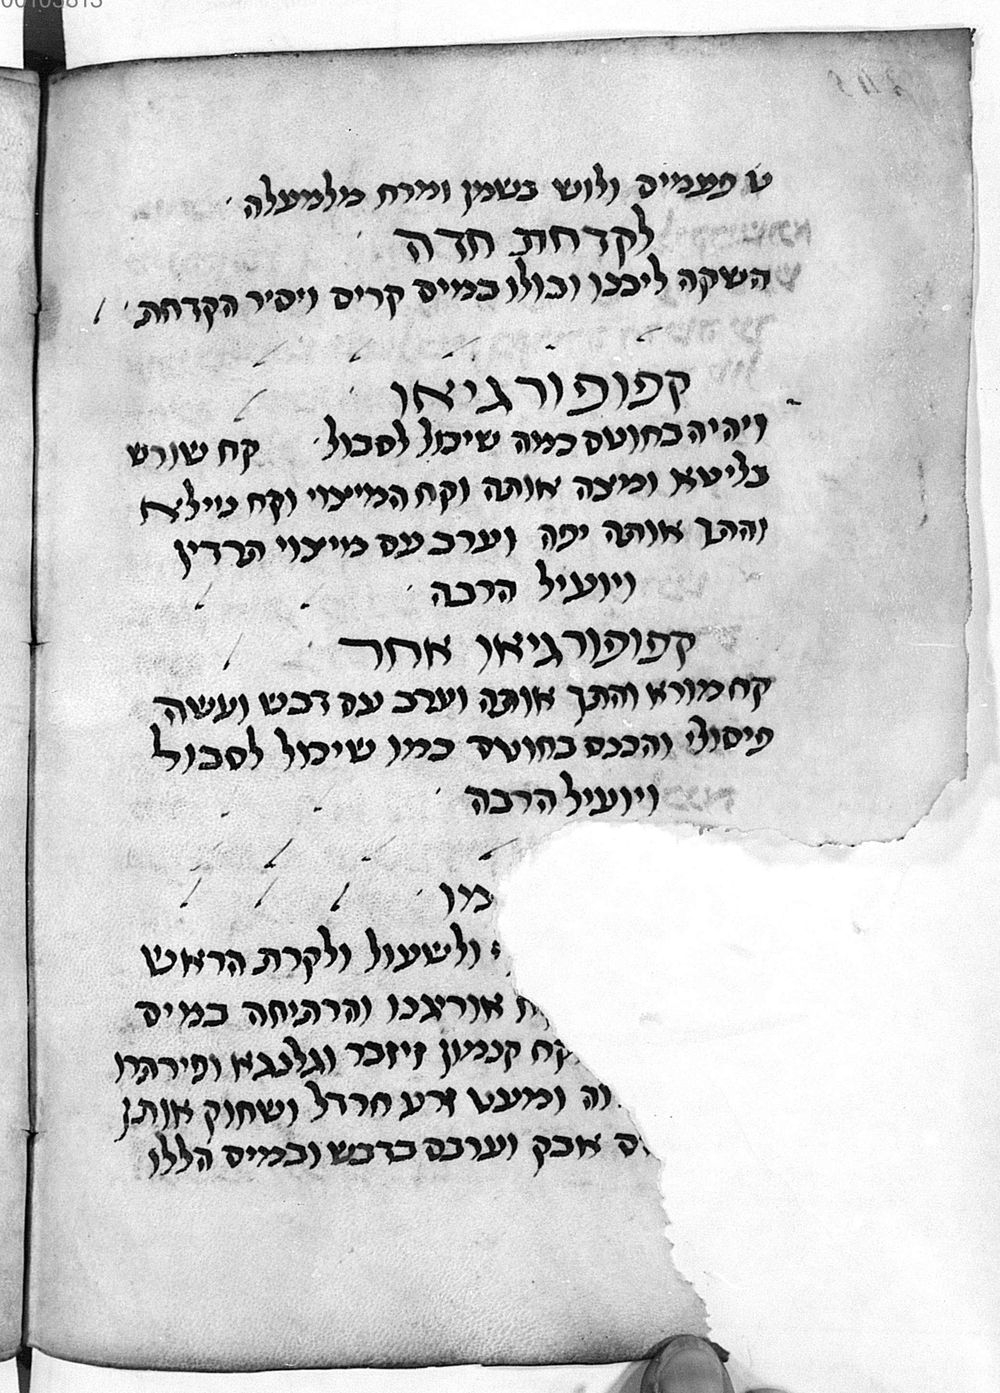 00103813
ט פעמים ולוש בשמן ומרח מלמעלה
לקדחת חדה
השקה ליבנו וכולו במים קרים ויסיר הקדחת
קפופורגיאו
ויהיה בחוטם כמה שיכול לסבול קח שורש
בליטא ומיצה אותה וקח המיצוי וקח
והתך אותה יפה וערב עם מיצוי תרדין
ויועיל הרבה
קפופורגיאו אחר
קח מורא והתך אותה וערב עם דבש ועשה
פיסולי והכנס בחוטם כמו שיכול לסבול
ויועיל הרבה
מו
ולשעול ולקרת הראש
ח אוריגנו והרתיחה במים
קח קנמון זיזבר וגלנגא ופירתרו
וה ומעט זרע חרדל ושחוק אותן
ם אבק וערבם בדבש ובמים הללו